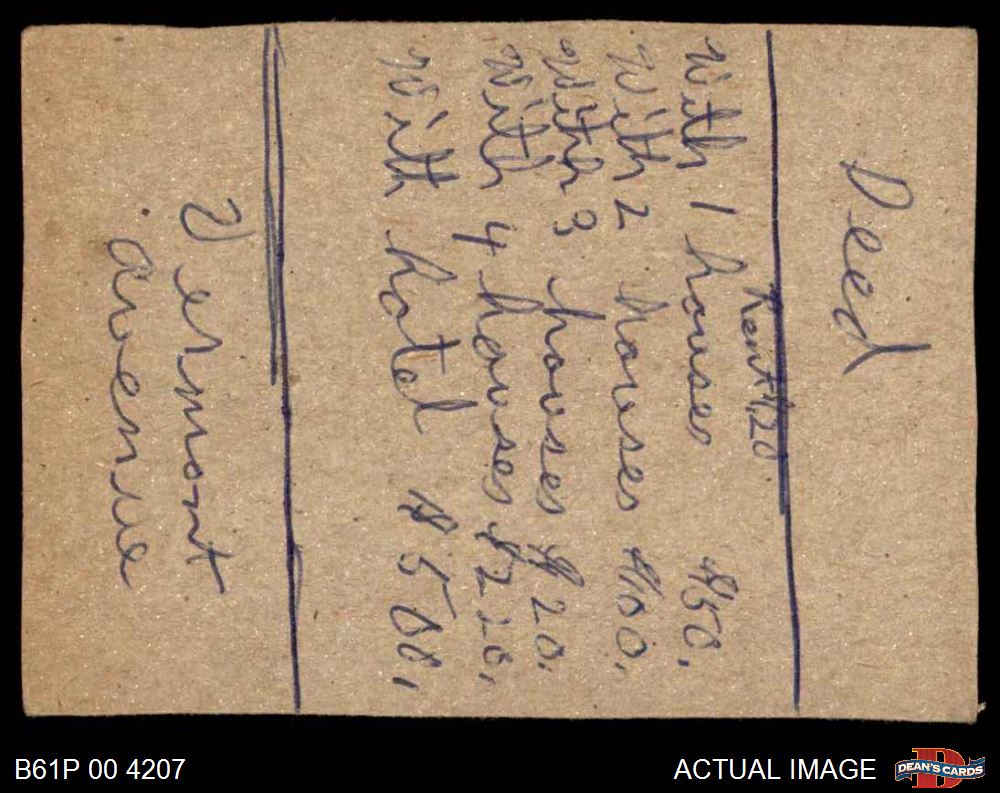 Deed
Rent $20
With 1 houses $50.
With 2 houses $100.
With 3 houses $20.
With 4 houses $220.
With hotel $500.
Vermont
avenue
B61P 00 4207
ACTUAL IMAGE
DEAN'S CARDS